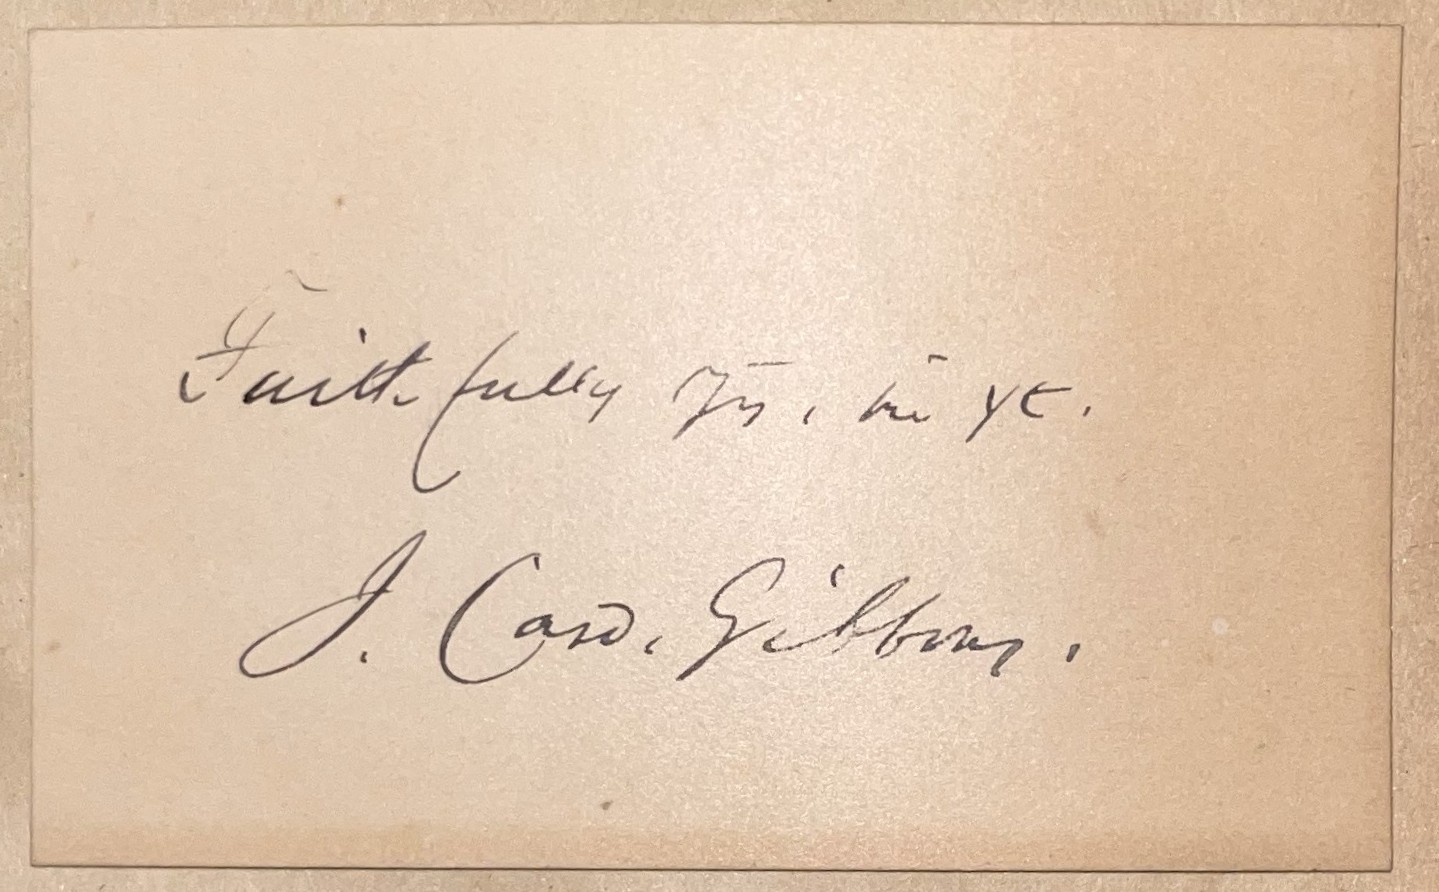 Faithfully Yrs, in Xt.
J. Card. Gibbons.